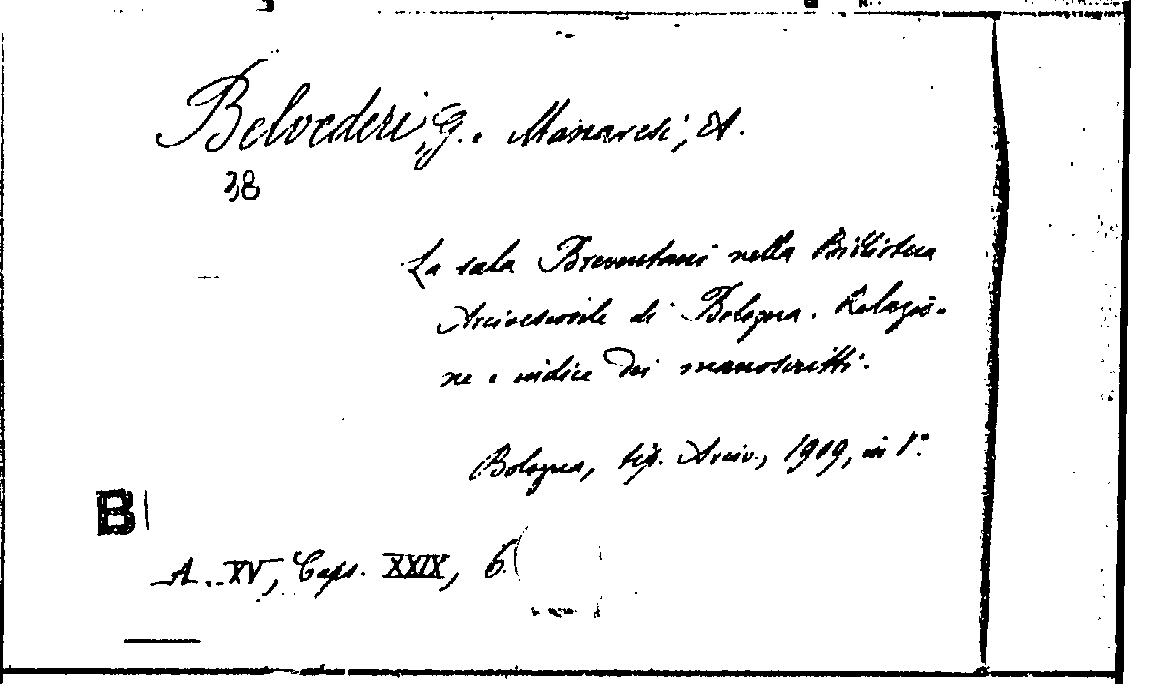 Belvederi, G. e Manaresi, A.
38
La sala Breventani nella Biblioteca
Arcivescovile di Bologna. Relazio-
ne e indice dei manoscritti.
Bologna, tip. Arciv., 1919, in 8°.
B
A. XV, Caps. XXIX, 6